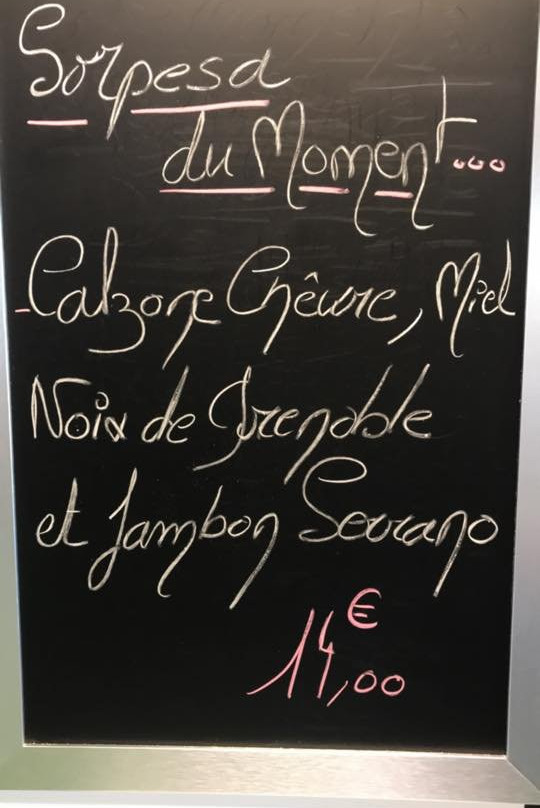 Sorpesa
du Moment...
-Calzone Chêvre, Miel
Noix de Grenoble
et Jambon Serrano
14,00 €